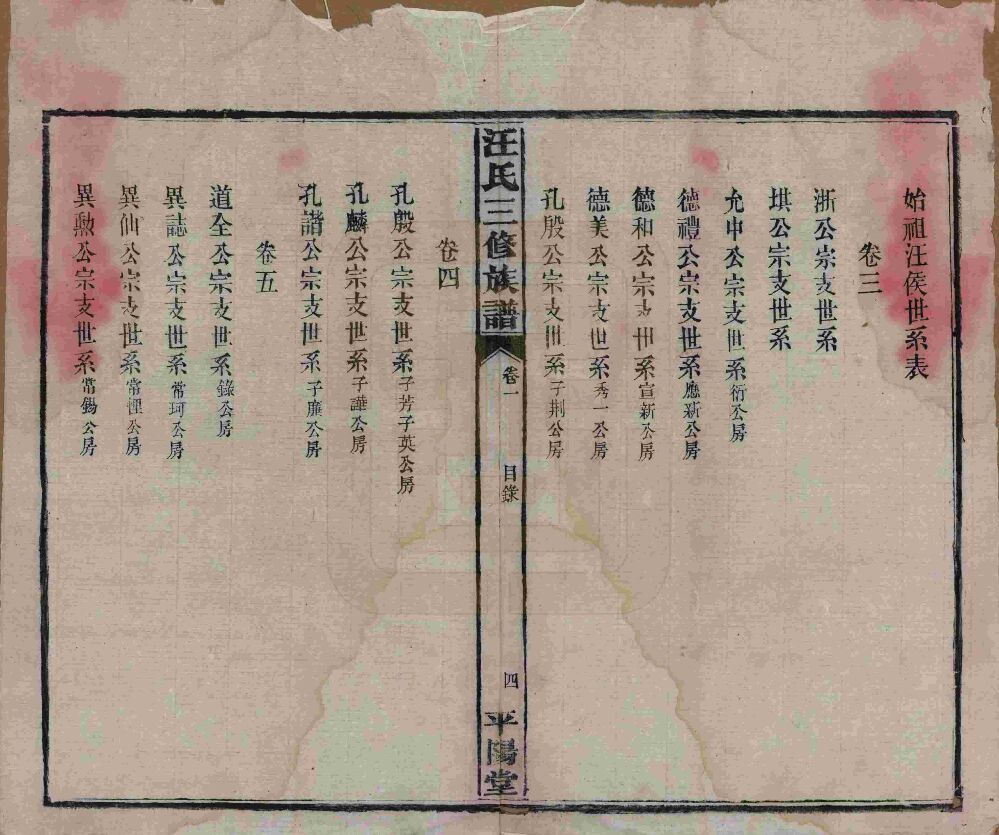 始祖汪侯世系表
卷三
浙公宗支世系
堪公宗支世系
允中公宗支世系衍公房
德禮公宗支世系應新公房
德和公宗支世系宣新公房
德美公宗支世系秀一公房
孔殷公宗支世系子荆公房
汪氏三修族譜
卷一
目錄
四
平陽堂
卷四
孔殷公宗支世系子芳子英公房
孔麟公宗支世系子譁公房
孔譜公宗支世系子廉公房
卷五
道全公宗支世系錄公房
異誌公宗支世系常珂公房
異仙公宗支世系常悝公房
異勳公宗支世系常錫公房